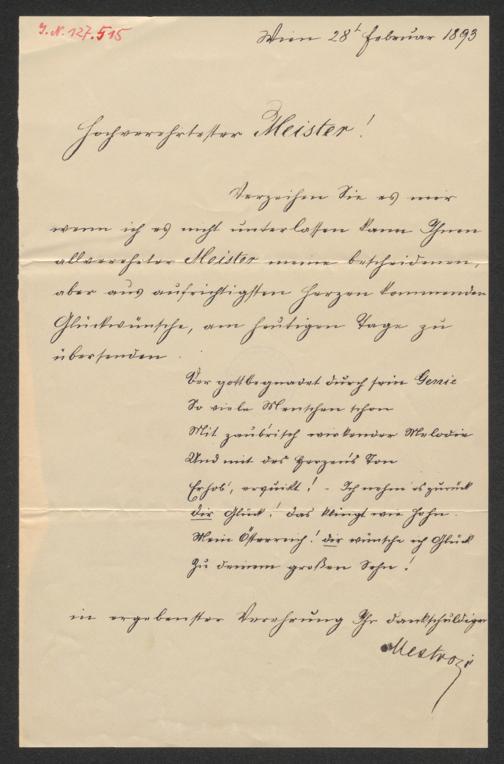 I.N. 127.515
Wien 28t Februar 1893
Hochverehrtester Meister!
Verzeihen Sie es mir
wenn ich es nicht unterlassen kann Ihnen
allverehrter Meister meine bescheidenen,
aber aus aufrichtigsten Herzen kommenden
Glückwünsche, am heutigen Tage zu
übersenden.
Der gottbegnadet durch sein Genie
So viele Menschen schon
Mit zaub'risch wirkender Melodie
Und mit des Herzens Ton
Erhob', erquikt! - Ich nehm es zurück
dir Glück! das klingt wie Hohn.
Mein Österreich! dir wünsche ich Glück
Zu deinem großen Sohn!
in ergebenster Verehrung Ihr dankschuldiger
Mestrozi